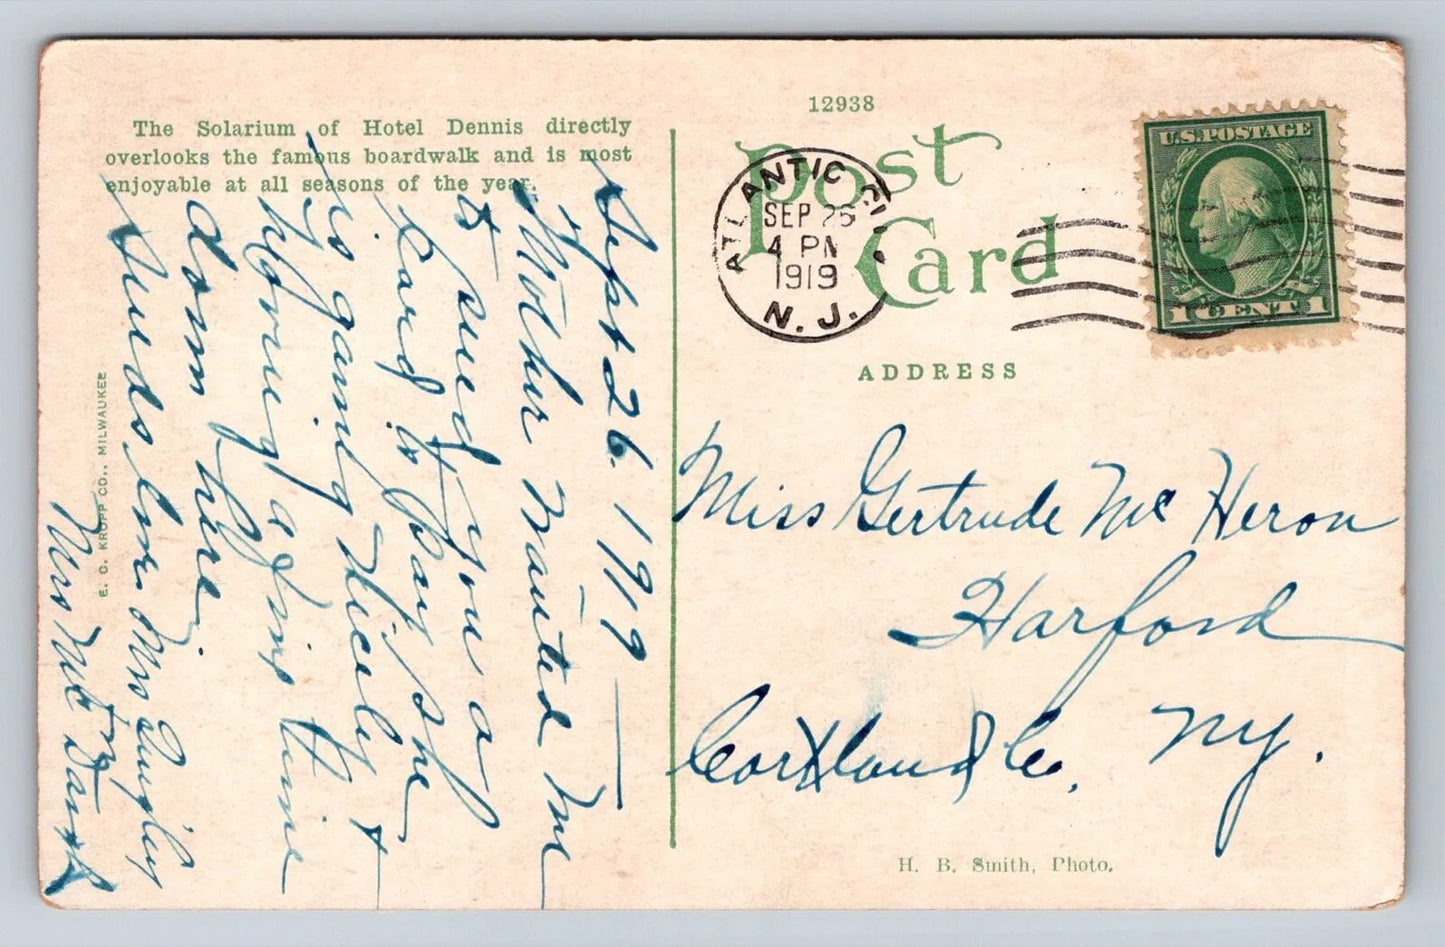 12938
The Solarium of Hotel Dennis directly
overlooks the famous boardwalk and is most
enjoyable at all seasons of the year.
Post
Card
ATLANTIC CITY
SEP 26
4 PM
1919
N. J.
U.S. POSTAGE
1 CENT 1
ADDRESS
Sept 26. 1919
Mother Wanted me
to send you a
Card to say she
is gaining Nicely +
having a fine time
down here
Sends love
Mrs
Miss Gertrude Mc Heron
Harford
Cortland Co, Ny.
E. C. KROPP CO., MILWAUKEE
H. B. Smith, Photo.